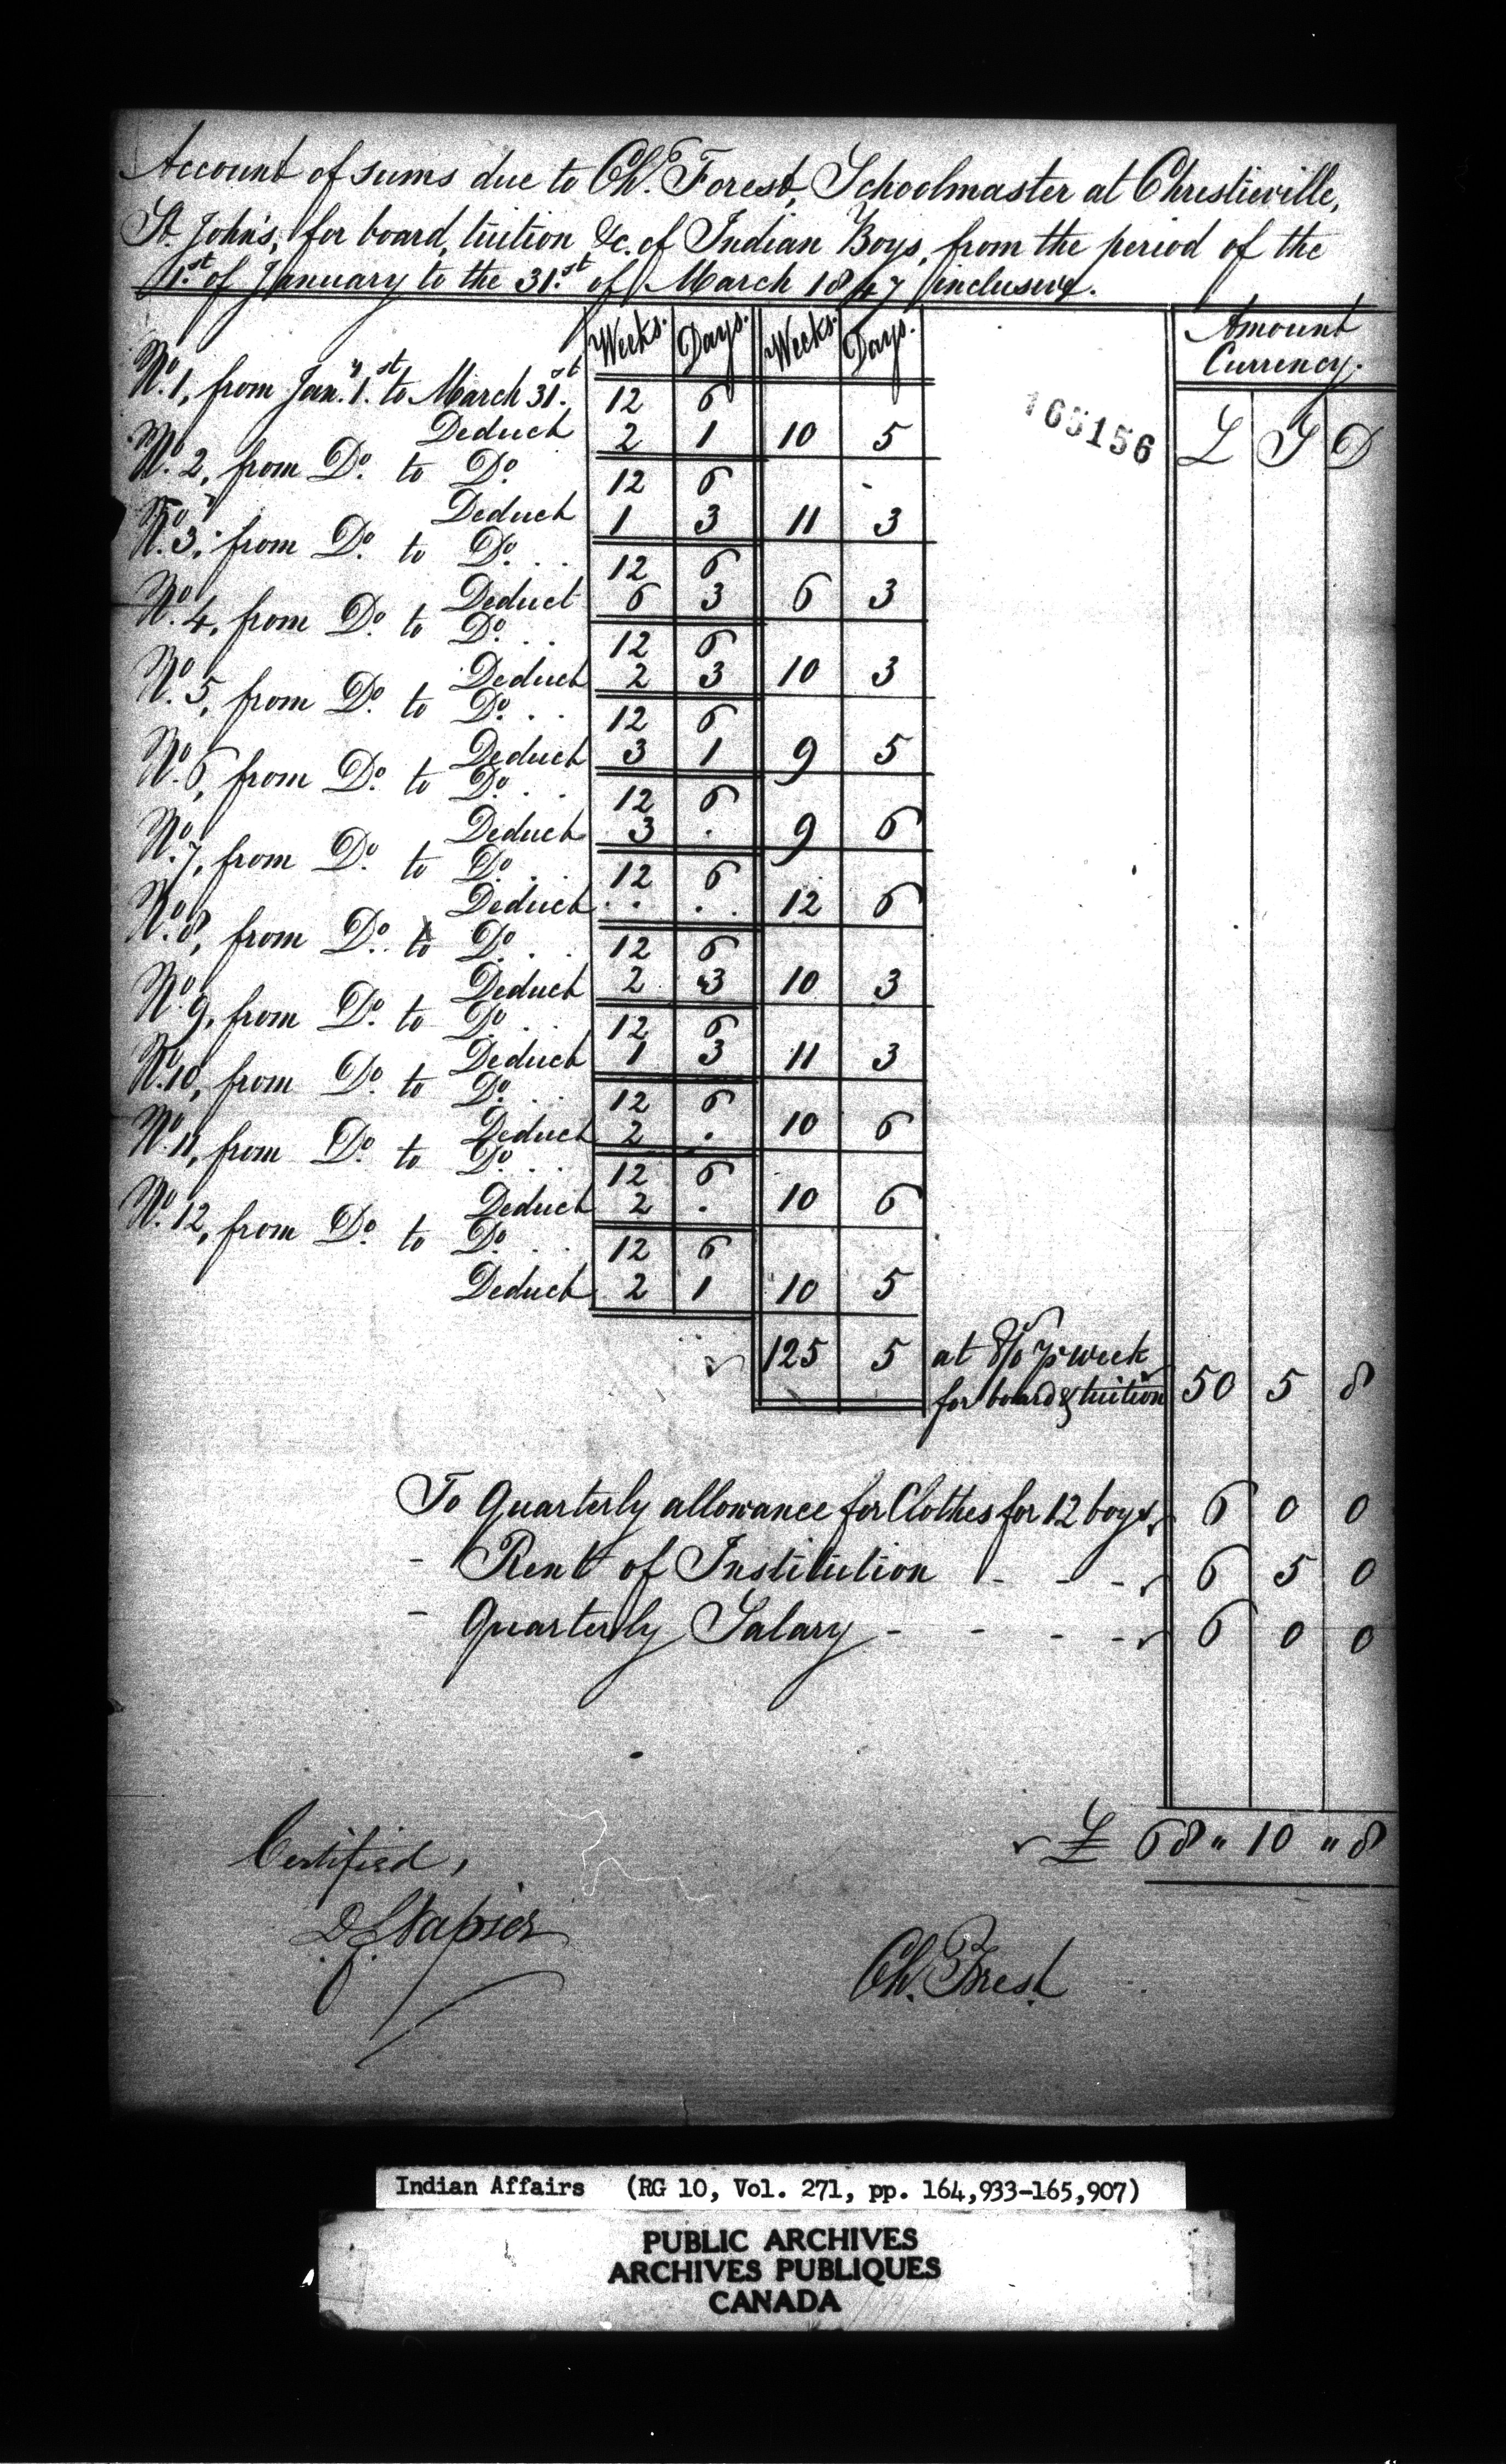 Account of sums due to Ch. Forest, Schoolmaster at Christieville,
St. John's, for board, tuition &c. of Indian Boys, from the period of the
1st. of January to the 31st. of March 1847 inclusive.
Weeks. Days. Weeks. Days. Amount Currency.
165156
£ S D
No. 1, from Jany. 1st. to March 31st. 12 6
Deduct 2 1 10 5
No. 2, from Do. to Do. 12 6
Deduct 1 3 11 3
No. 3, from Do. to Do. . . 12 6
Deduct 6 3 6 3
No. 4, from Do. to Do. . . 12 6
Deduct 2 3 10 3
No. 5, from Do. to Do. . . 12 6
Deduct 3 1 9 5
No. 6, from Do. to Do. . . 12 6
Deduct 3 . 9 6
No. 7, from Do. to Do. . . 12 6
Deduct . . . . 12 6
No. 8, from Do. to Do. . . 12 6
Deduct 2 3 10 3
No. 9, from Do. to Do. . . 12 6
Deduct 1 3 11 3
No. 10, from Do. to Do. . . 12 6
Deduct 2 . 10 6
No. 11, from Do. to Do. . . 12 6
Deduct 2 . 10 6
No. 12, from Do. to Do. . . 12 6
Deduct 2 1 10 5
125 5 at 8/0 pr week
for board & tuition 50 5 8
To Quarterly allowance for Clothes for 12 boys, 6 0 0
- Rent of Institution - - - 6 5 0
- Quarterly Salary - - - - 6 0 0
£ 68 " 10 " 8
Certified,
D. C. Napier
Ch. Forest
Indian Affairs (RG 10, Vol. 271, pp. 164,933-165,907)
PUBLIC ARCHIVES
ARCHIVES PUBLIQUES
CANADA